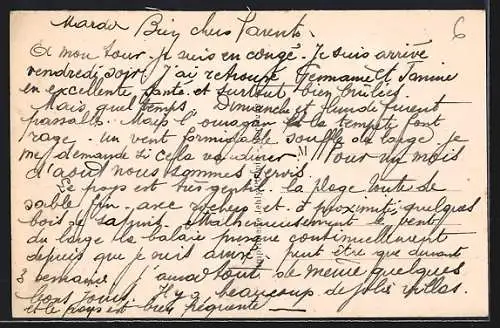 Mardi Bien chers Parents.
A mon tour je suis en congé. Je suis arrivé
vendredi soir j'ai retrouvé Germaine et Janine
en excellente santé et surtout bien brûlées.
Mais quel temps Dimanche et lundi furent
passable. Mais l'ouragan la tempête font
rage. un vent formidable souffle du large je
me demande si cela va durer Pour un mois
d'août nous sommes servis
Le pays est très gentil. la plage toute de
sable fin avec rochers et à proximité quelques
bois de sapins. Malheureusement le vent
du large la balaie presque continuellement
depuis que je suis arrivé. peut être que durant
3 semaines j'aurai tout de même quelques
bons jours. Il y a beaucoup de jolies villas.
et le pays est bien fréquenté
6